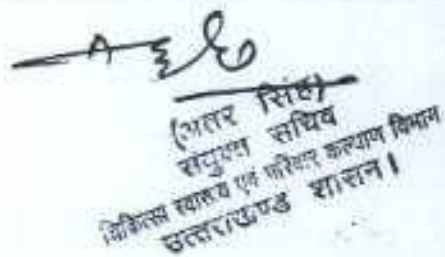 (अतर सिंह)
संयुक्त सचिव
चिकित्सा स्वास्थ्य एवं परिवार कल्याण विभाग
उत्तराखण्ड शासन।